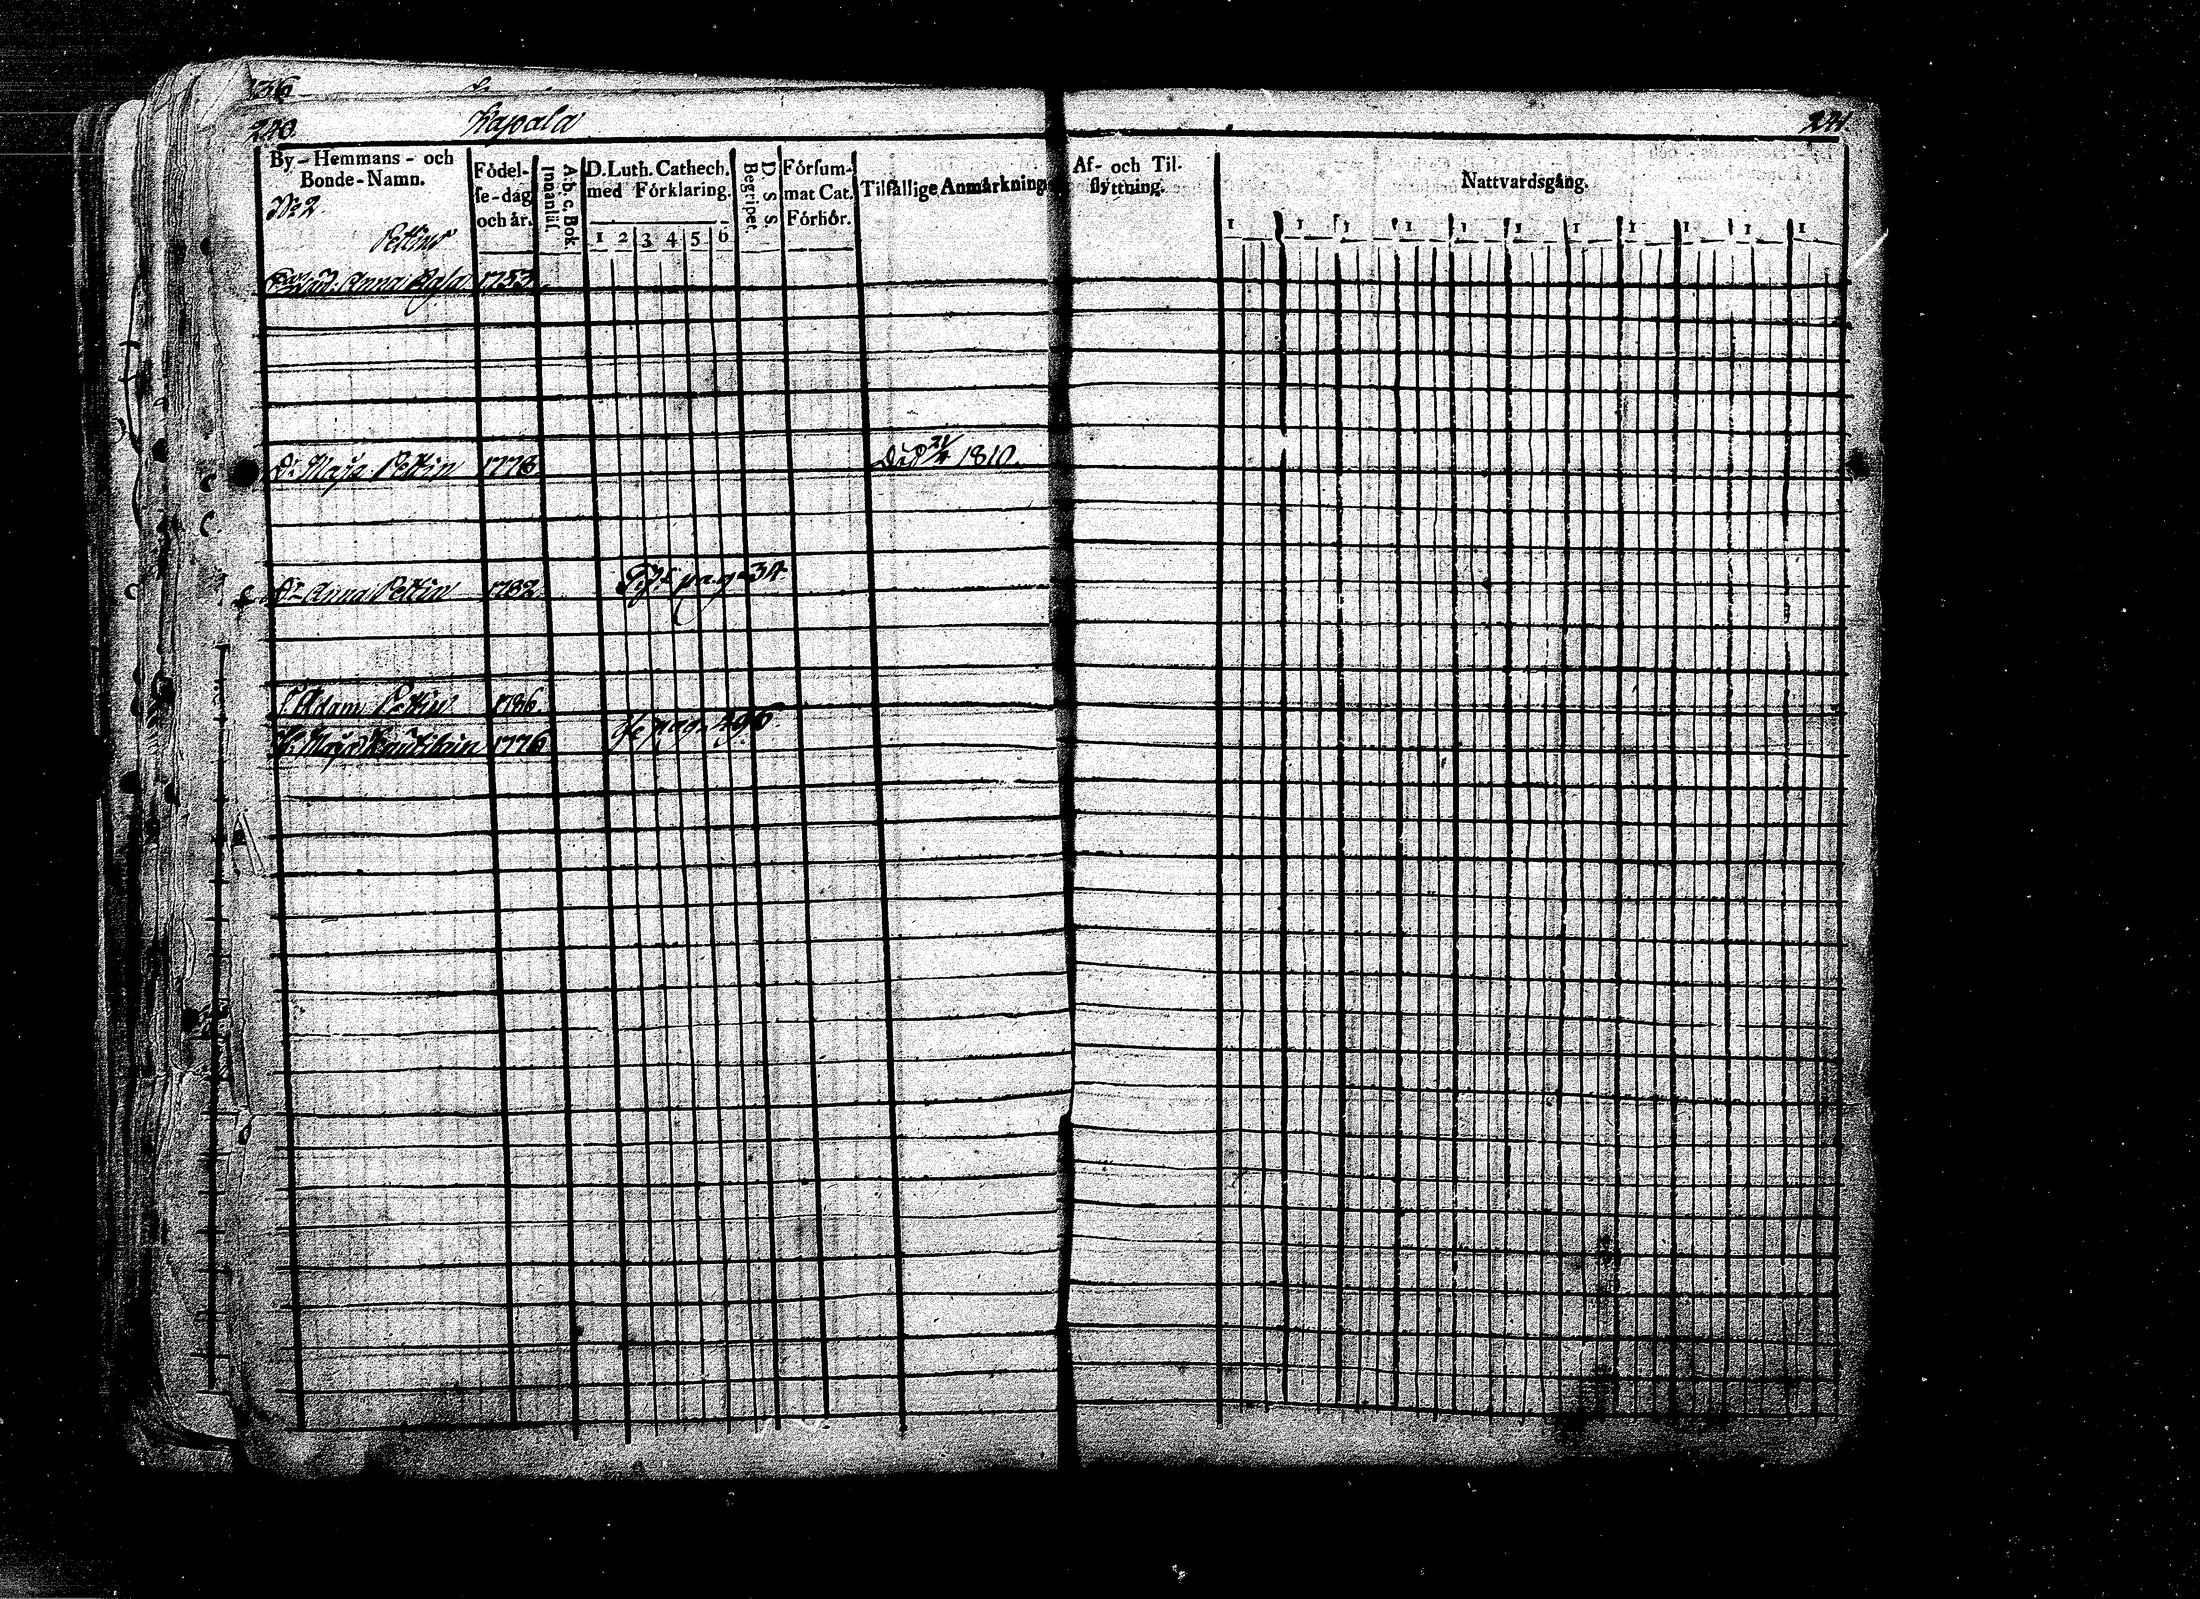 236
240. Wapala 241
By-Hemmans-och Bonde-Namn.
Födel-se-dag och år.
A.b.c. Bok Innanläs.
D. Luth. Cathech. med Förklaring.
1 2 3 4 5 6
D.S.S. Begripet.
Försum-mat Cat. Förhör.
Tilfällige Anmärkning
Af- och Til-flyttning.
Nattvardsgång.
1 1 1 1 1 1 1 1 1 1 1
No 2.
Pettin
Anna 1753
Dr Maja Pettin 1778 Död 1810.
Dr Anna Pettin 1782 pag 34
S. Adam Pettin 1786
H. Maja 1776 se pag. 296